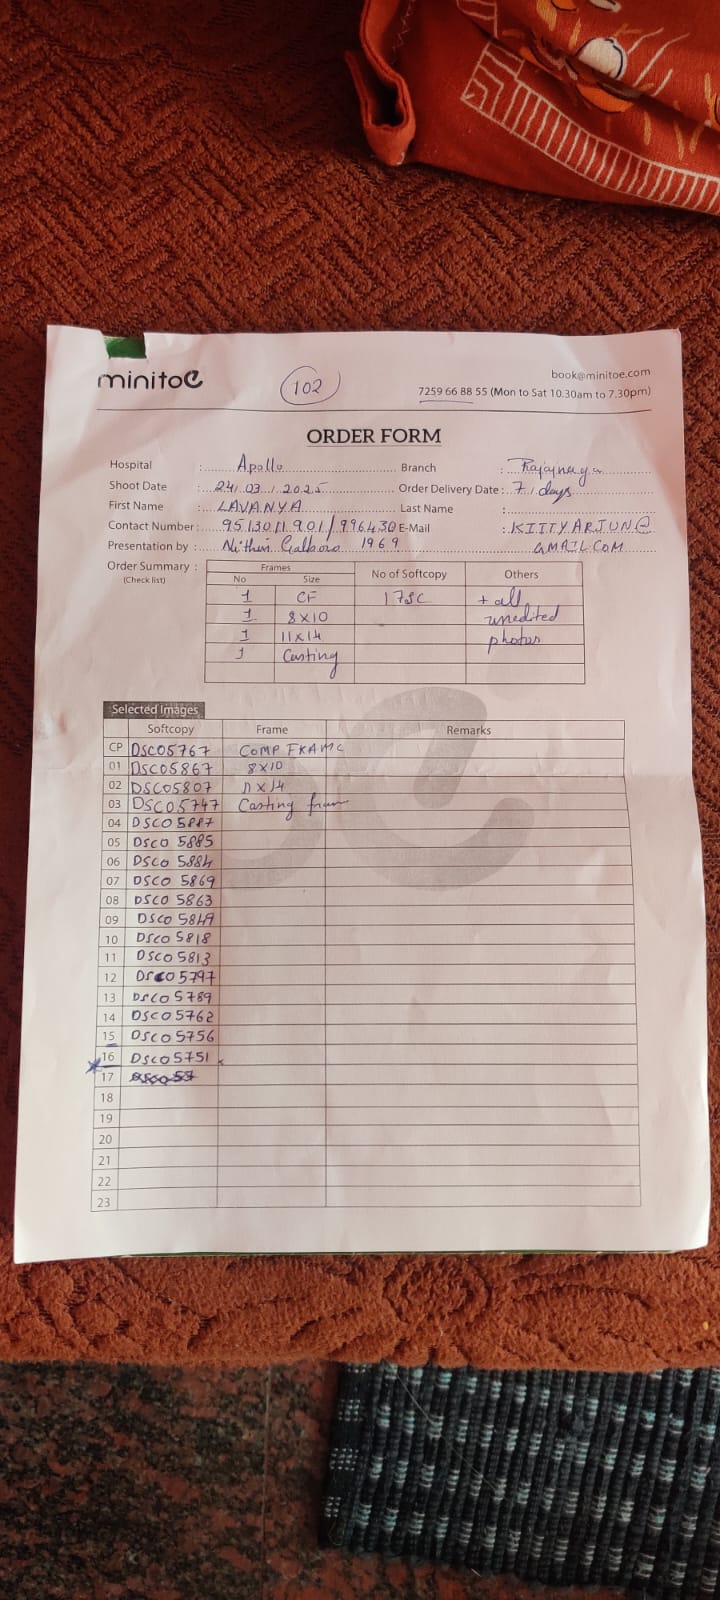 minitoe
102
book@minitoe.com
7259 66 88 55 (Mon to Sat 10.30am to 7.30pm)
ORDER FORM
Hospital : Apollo Branch :
Shoot Date : 24/03/2025 Order Delivery Date : 7 days
First Name : LAVANYA Last Name :
Contact Number : 9513011901/996430 E-Mail : KITTYARJUN@
Presentation by : Nithin 1969 GMAIL.COM
Order Summary : (Check list)
Frames No of Softcopy Others
No Size
1 CF 17SC + all
1 8x10 unedited
1 11x14 photos
1 Casting
Selected Images
Softcopy Frame Remarks
CP DSC05767 COMP FRAME
01 DSC05867 8x10
02 DSC05807 11x14
03 DSC05747 Casting frame
04 DSC05887
05 DSC05885
06 DSC05884
07 DSC05869
08 DSC05863
09 DSC05849
10 DSC05818
11 DSC05813
12 DSC05797
13 DSC05789
14 DSC05762
15 DSC05756
16 DSC05751
17
18
19
20
21
22
23